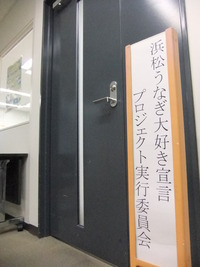 浜松うなぎ大好き宣言
プロジェクト実行委員会